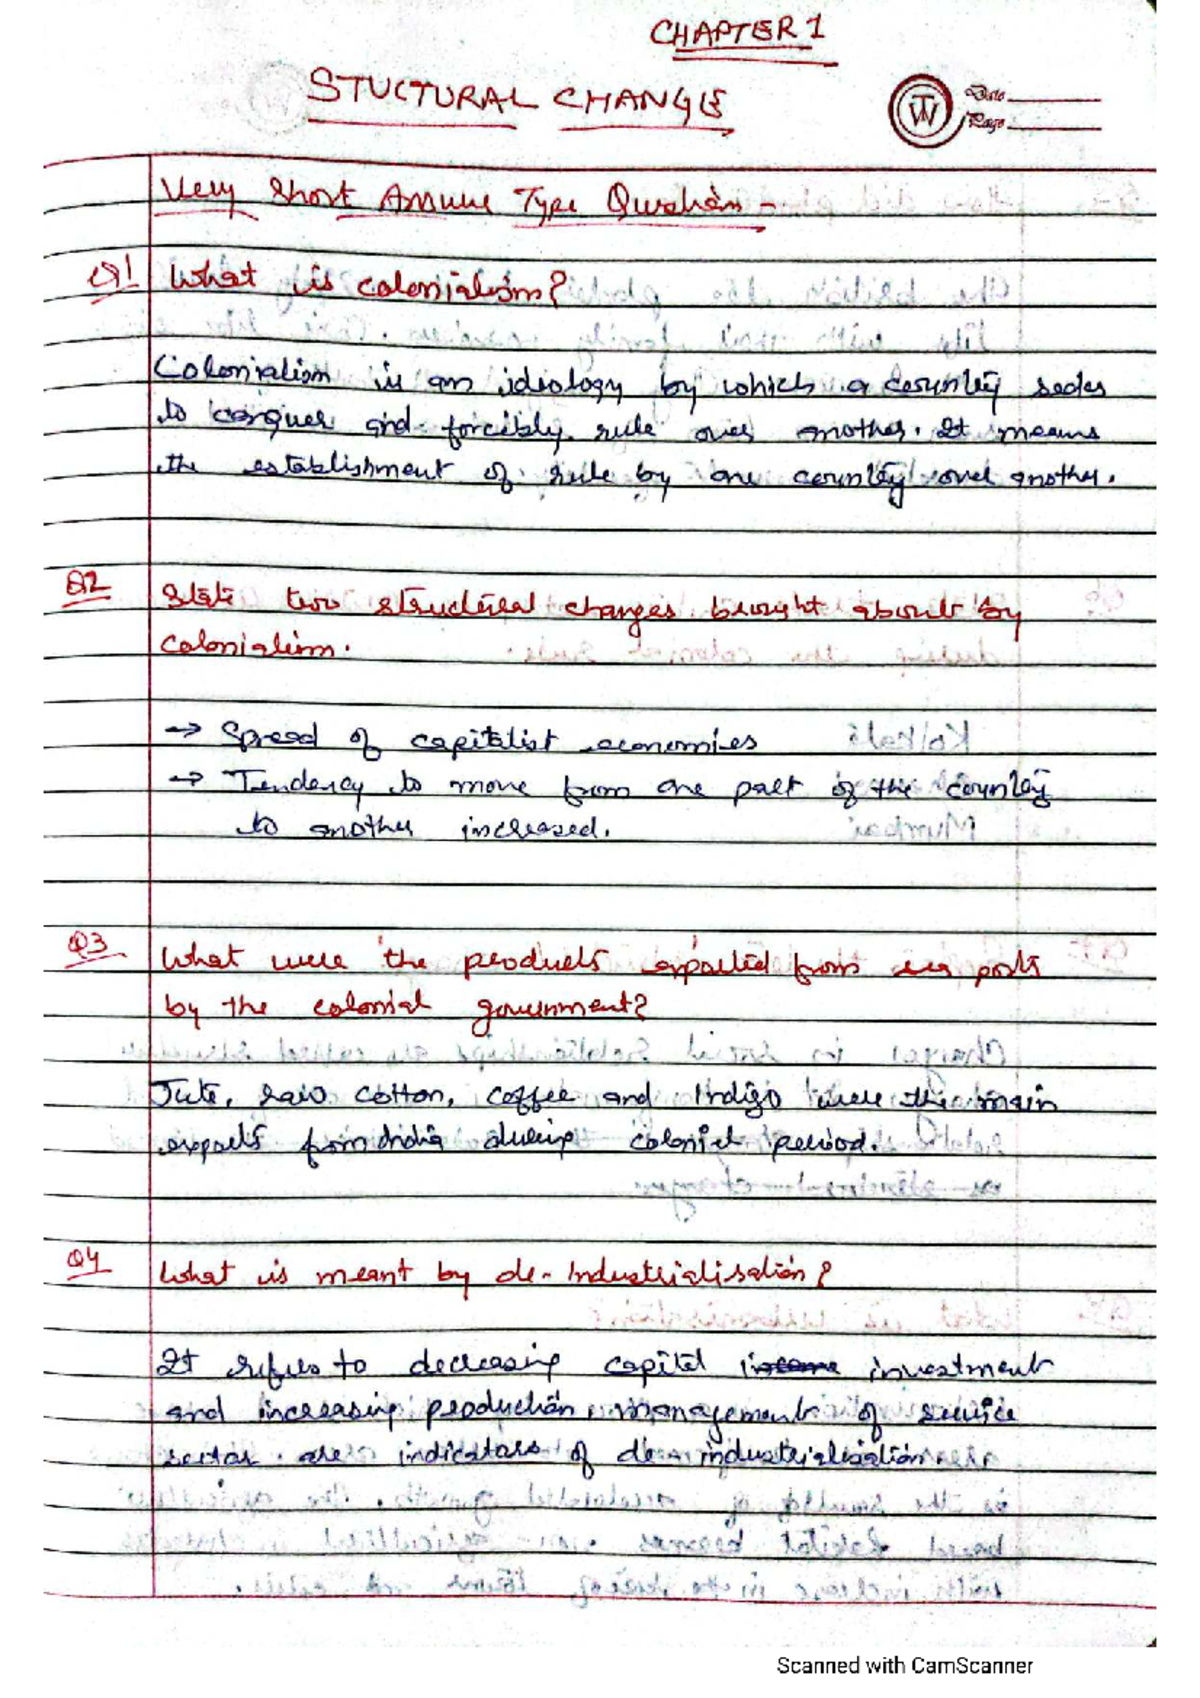 CHAPTER 1
STUCTURAL CHANGE
Date
Page
TW
Very Short Answer Type Question -
Q1 What is colonialism?
Colonialism is an ideology by which a country seeks
to conquer and forcibly rule over another. It means
the establishment of rule by one country over another.
Q2 State two structural changes brought about by
colonialism.
→ Spread of capitalist economies
→ Tendency to move from one part of the country
to another increased.
Q3 What were the products exported from sea ports
by the colonial government?
Jute, raw cotton, coffee and Indigo were the main
exports from India during colonial period.
Q4 What is meant by de-Industrialisation?
It refers to decreasing capital income investment
and increasing production, management of service
sector. are indicators of de-industrialisation
Scanned with CamScanner